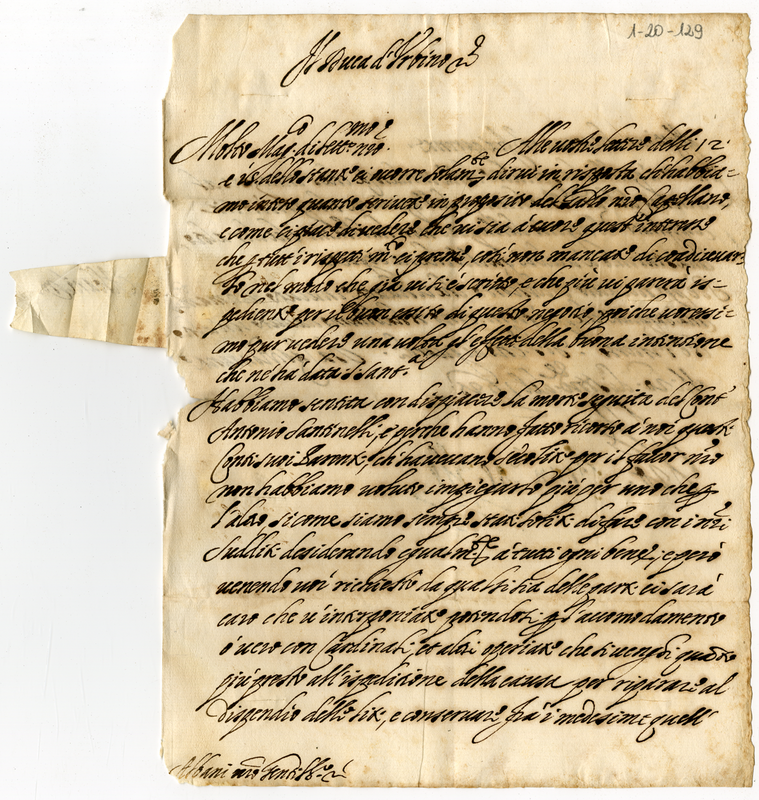 1-20-129
Il Duca d'Urbino
Molto Mag.co dilett.mo nro. Alle vostre lettere delli 12
e 15 dello stante ci occorre solam.te dirvi in risposta c'habbia-
mo inteso quanto scrivete in proposito del nro Castellano,
e come ci piace di vedere che vi sia à cuore quest'interesse
che p tutti i rispetti m.to ci preme, così non mancate di coadiuvar-
lo nel modo che già vi si è scritto, e che più vi parerà is-
pediente per il buon esito di questo negotio, poiche vorressi-
mo pur vedere una volta gl'effetti della buona intentione
che ne hà data S. Sant.tà
Habbiamo sentita con dispiacere la morte seguita del Conte
Antonio Santinelli, e perche hanno fatto ricorso à noi questi
Conti suoi Parenti, ch'havevano seco lite per il favor nro
non habbiamo voluto impiegarlo più per uno che p
l'altro si come siamo sempre stati soliti di fare con i nri
Sudditi desiderando egualm.te à tutti ogni bene, e però
venendo voi richiesto da qualsisia delle parti ci sarà
caro che v'interponiate potendosi p l'accomodamento
ò vero con Cardinali, et altri operiate che si venghi quanto
più presto all'ispeditione della causa per riparare al
dispendio delle liti, e conservare frà i medesimi quell'
Albani nro